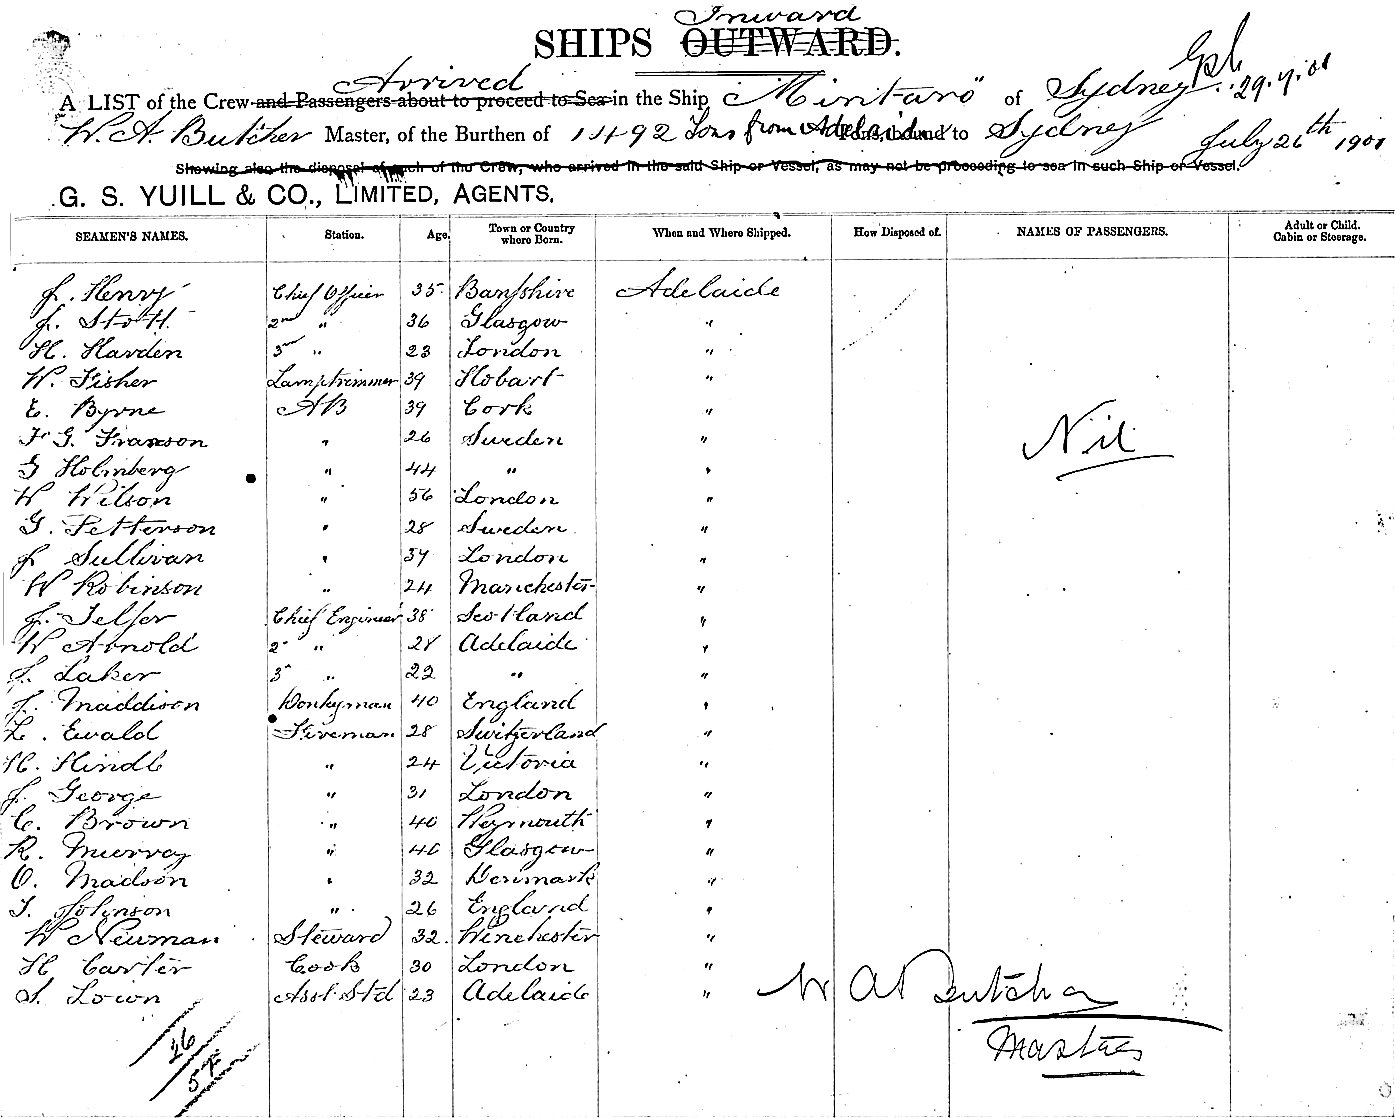 Inward
SHIPS OUTWARD.
Arrived
A LIST of the Crew and Passengers about to proceed to Sea in the Ship "Mintaro" of Sydney 29.7.01
W. A. Butcher Master, of the Burthen of 1492 Tons from Adelaide to Sydney July 26th 1901
Showing also the disposal of each of the Crew, who arrived in the said Ship or Vessel, as may not be proceeding to sea in such Ship or Vessel.
G. S. YUILL & CO., LIMITED, AGENTS.
SEAMEN'S NAMES. Station. Age. Town or Country where Born. When and Where Shipped. How Disposed of. NAMES OF PASSENGERS. Adult or Child. Cabin or Steerage.
J. Henry Chief Officer 35 Banffshire Adelaide
J. Stott 2nd " 36 Glasgow "
H. Harden 3rd " 23 London "
W. Fisher Lamptrimmer 39 Hobart "
E. Byrne AB 39 Cork "
F. G. Franson " 26 Sweden "
Nil
G Holmberg " 44 " "
W Wilson " 56 London "
G. Petterson " 28 Sweden "
J Sullivan " 37 London "
W Robinson " 24 Manchester "
J. Telfer Chief Engineer 38 Scotland "
W Arnold 2nd " 28 Adelaide "
J. Laker 3rd " 22 " "
J. Maddison Donkyman 40 England "
L. Ewald Fireman 28 Switzerland "
H. Hindle " 24 Victoria "
J. George " 31 London "
C. Brown " 40 Weymouth "
R. Murray " 40 Glasgow "
O. Madson " 32 Denmark "
T. Johnson " 26 England "
W Newman Steward 32 Winchester "
H Carter Cook 30 London "
S. Lown Asst Std 23 Adelaide "
W A Butcher
Master
26